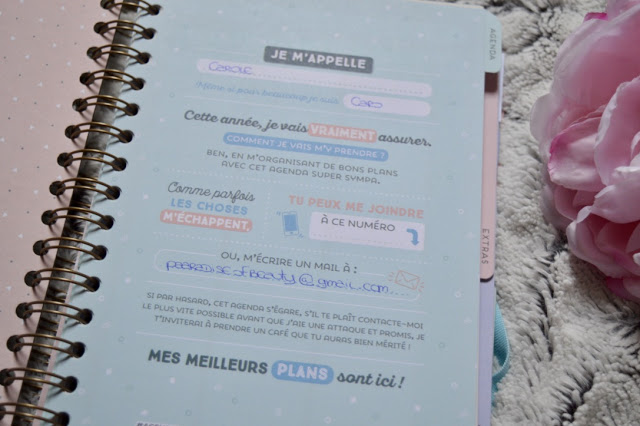 JE M'APPELLE
CAROLE
Même si pour beaucoup je suis CARO
Cette année, je vais VRAIMENT assurer.
COMMENT JE VAIS M'Y PRENDRE ?
BEN, EN M'ORGANISANT DE BONS PLANS
AVEC CET AGENDA SUPER SYMPA.
Comme parfois
LES CHOSES
M'ÉCHAPPENT,
TU PEUX ME JOINDRE
À CE NUMÉRO
OU, M'ÉCRIRE UN MAIL À :
paaradiseofbeauty@gmail.com
SI PAR HASARD, CET AGENDA S'ÉGARE, S'IL TE PLAÎT CONTACTE-MOI
LE PLUS VITE POSSIBLE AVANT QUE J'AIE UNE ATTAQUE ET PROMIS, JE
T'INVITERAI À PRENDRE UN CAFÉ QUE TU AURAS BIEN MÉRITÉ !
MES MEILLEURS PLANS sont ici !
AGENDA
EXTRAS